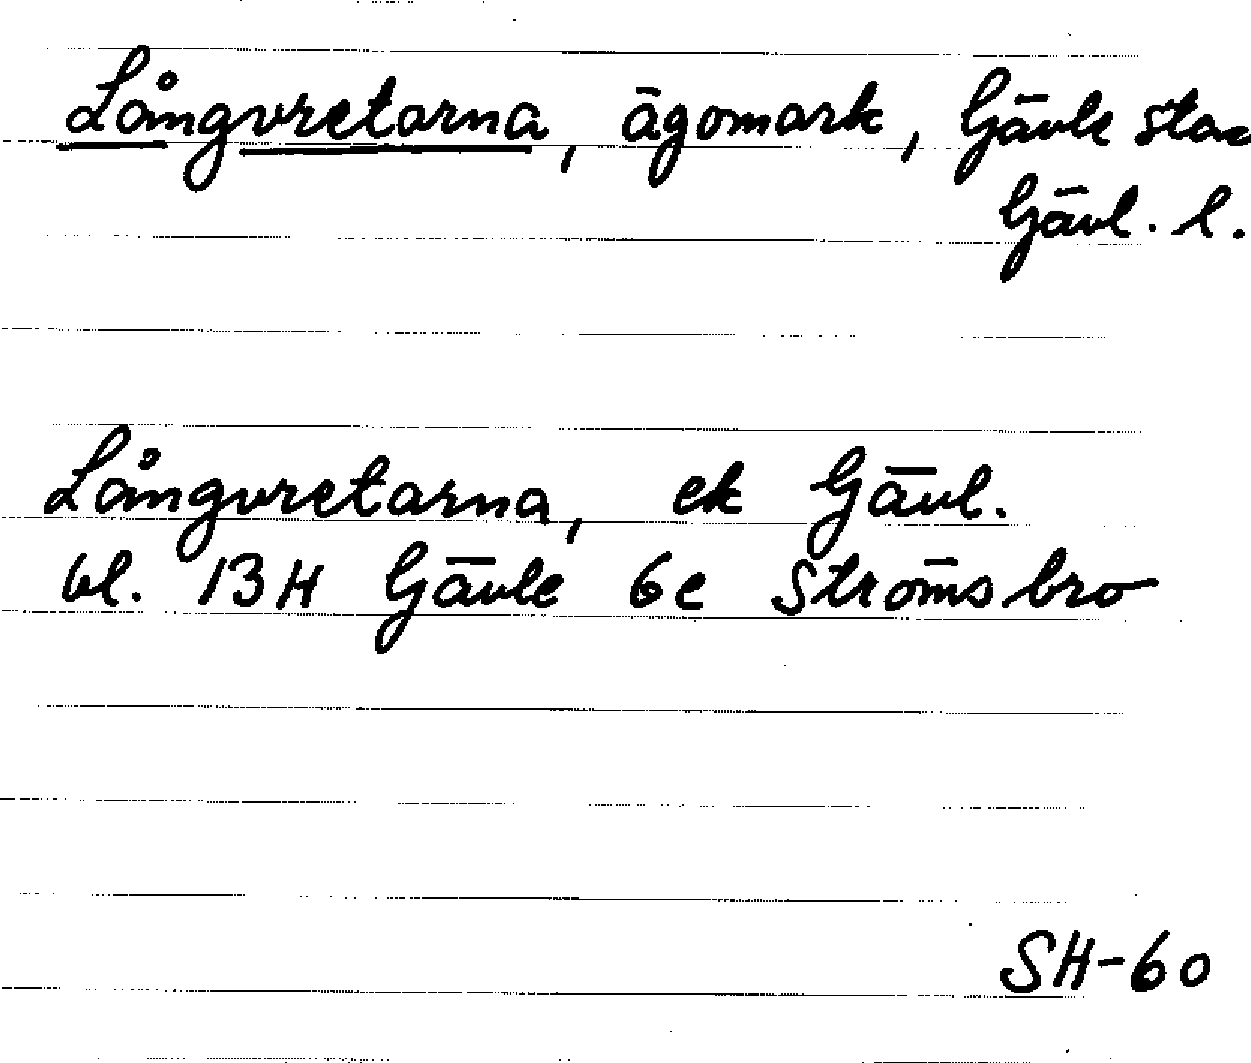 Långvretarna, ägomark, Gävle
Gävl. l.
Långvretarna, ek Gävl.
bl. 13H Gävle 6e Strömsbro
SH-60